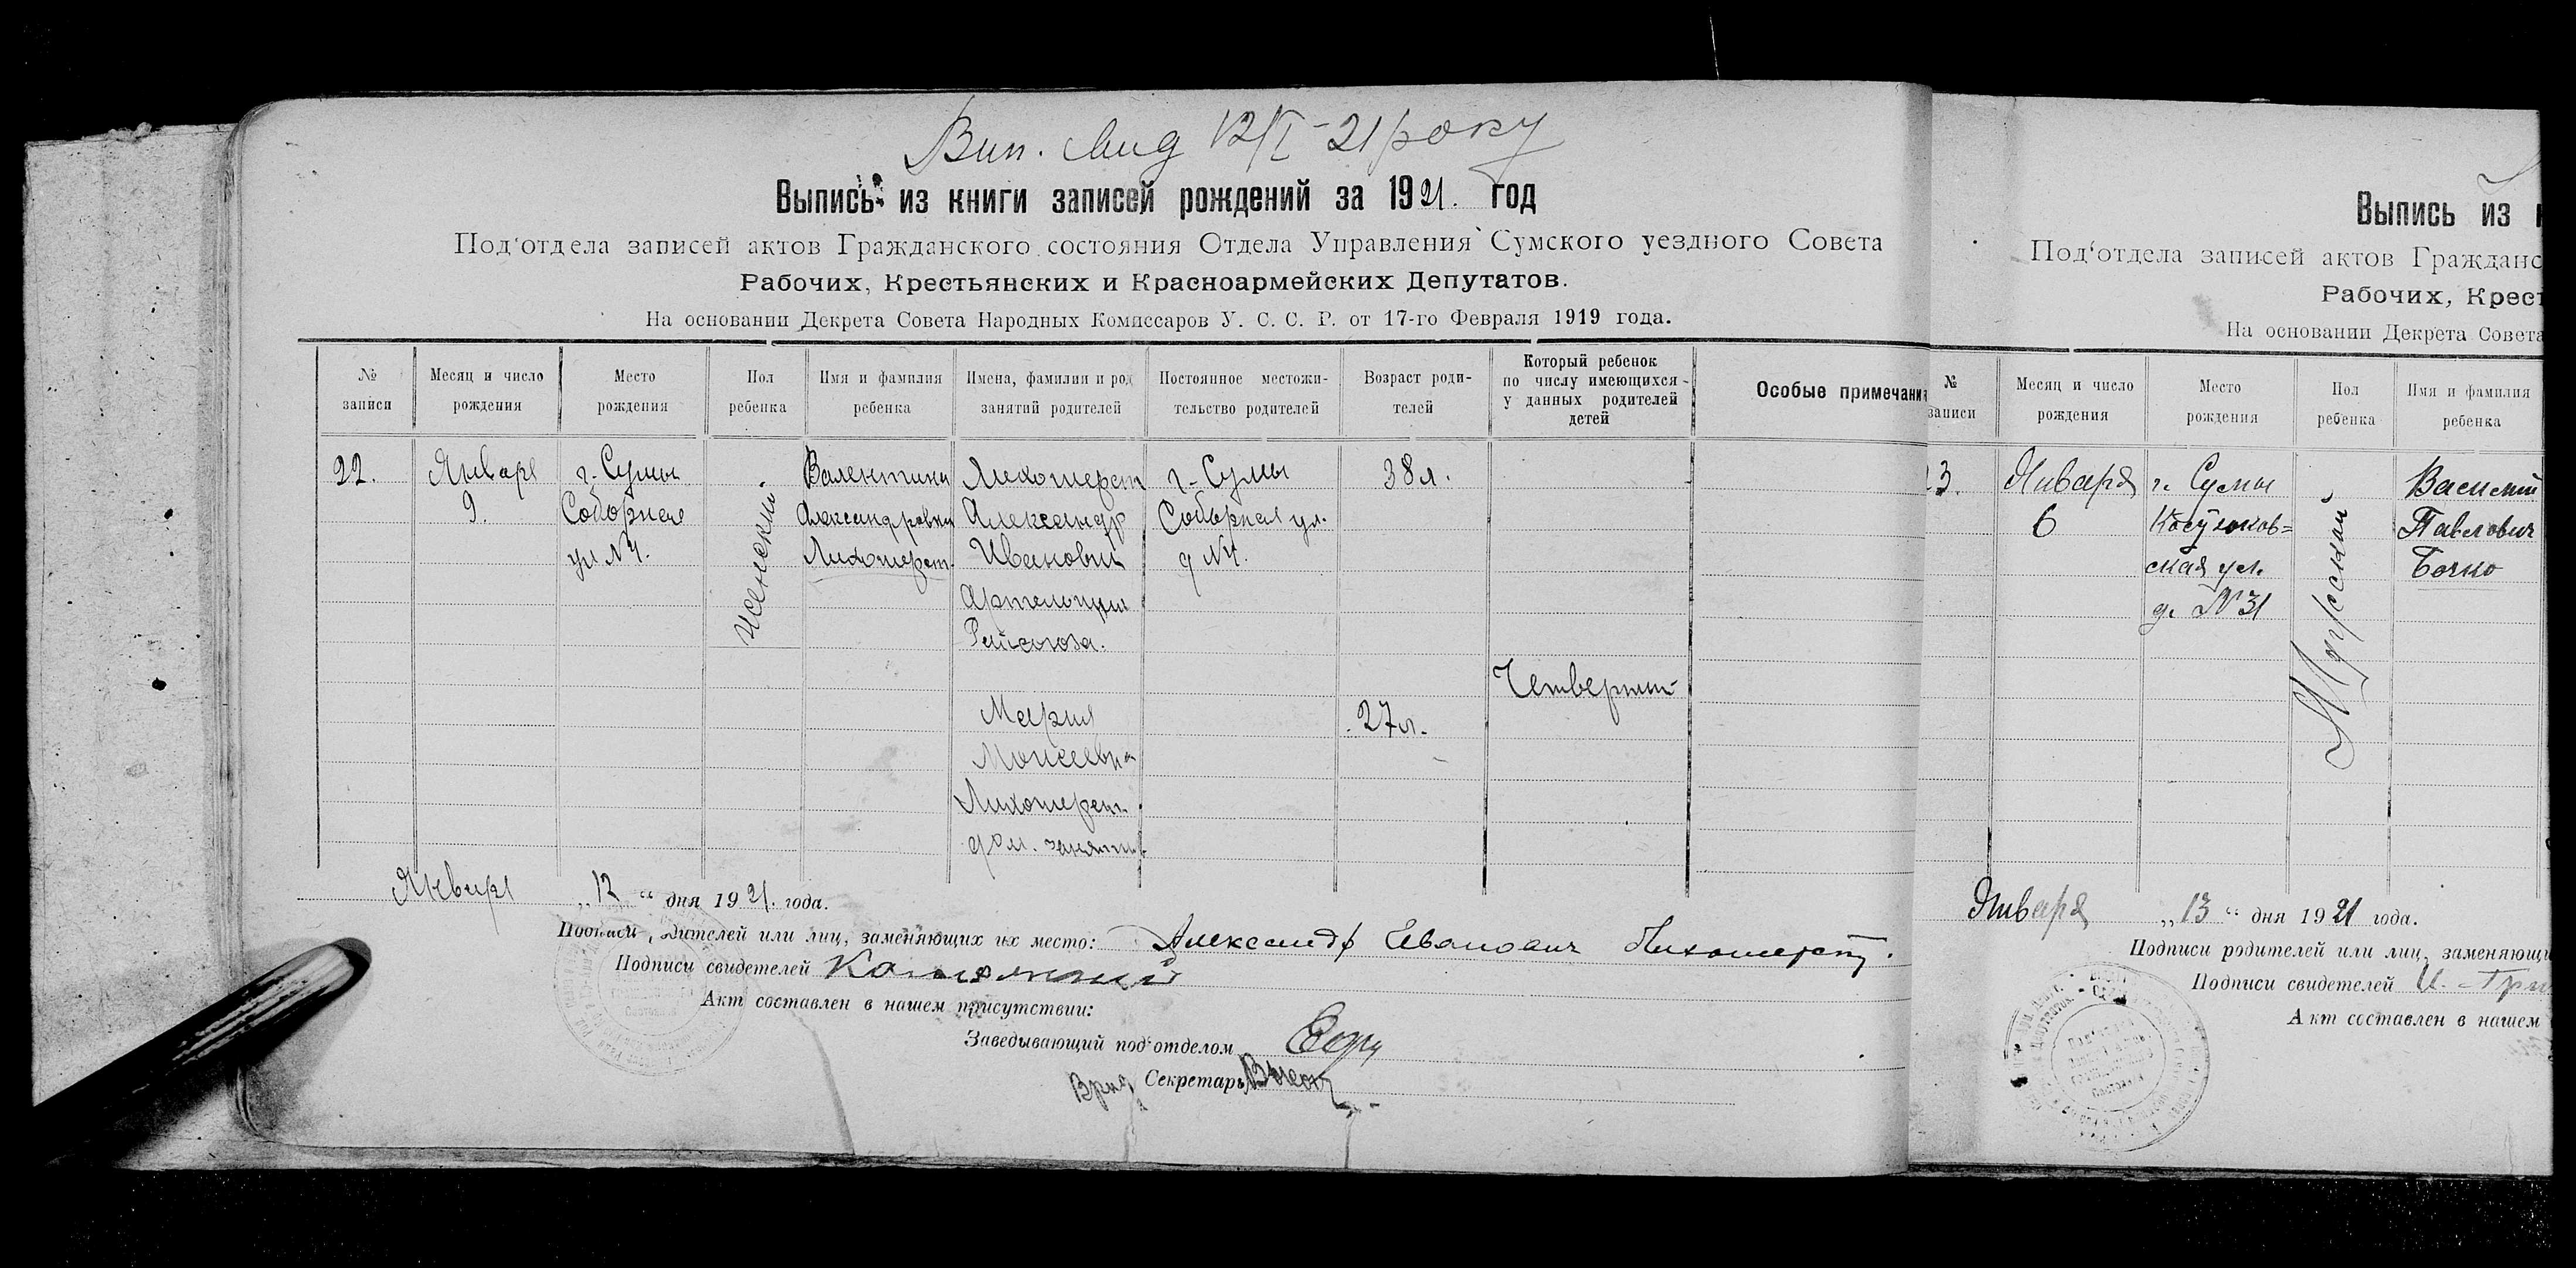 Вип. Лид 12/I-21 року
Выпись из книги записей рождений за 1921. год
Под'отдела записей актов Гражданского состояния Отдела Управления Сумского уездного Совета
Рабочих, Крестьянских и Красноармейских Депутатов.
На основании Декрета Совета Народных Комиссаров У. С. С. Р. от 17-го Февраля 1919 года.
№ записи
Месяц и число рождения
Место рождения
Пол ребенка
Имя и фамилия ребенка
Имена, фамилии и род занятий родителей
Постоянное местожи-
тельство родителей
Возраст роди-
телей
Который ребенок
по числу имеющихся
у данных родителей
детей
Особые примечания
22.
Января
9.
г. Сумы
Соборная
ул № 4.
женский
Валентина
Александровна
Лихошерст
Лихошерст
Александр
Иванович
Артельщик
Райсоюза.
Мария
Моисеевна
Лихошерст
дом. занятия
г. Сумы
Соборная ул.
д № 4.
38 л.
27 л.
Четвертый
Января „12“ дня 1921. года.
Подписи родителей или лиц, заменяющих их место: Александр Иванович Лихошерст.
Подписи свидетелей
Акт составлен в нашем присутствии:
Заведывающий под'отделом
Врид Секретарь
Выпись из
Под'отдела записей актов Гражданс
Рабочих, Крест
На основании Декрета Совета
№
записи
Месяц и число
рождения
Место
рождения
Пол
ребенка
Имя и фамилия
ребенка
23.
Января
6
г. Сумы
ская ул.
д. № 31
Мужской
Василий
Павлович
Бочко
Января „13“ дня 1921 года.
Подписи родителей или лиц, заменяющи
Подписи свидетелей И.
Акт составлен в нашем